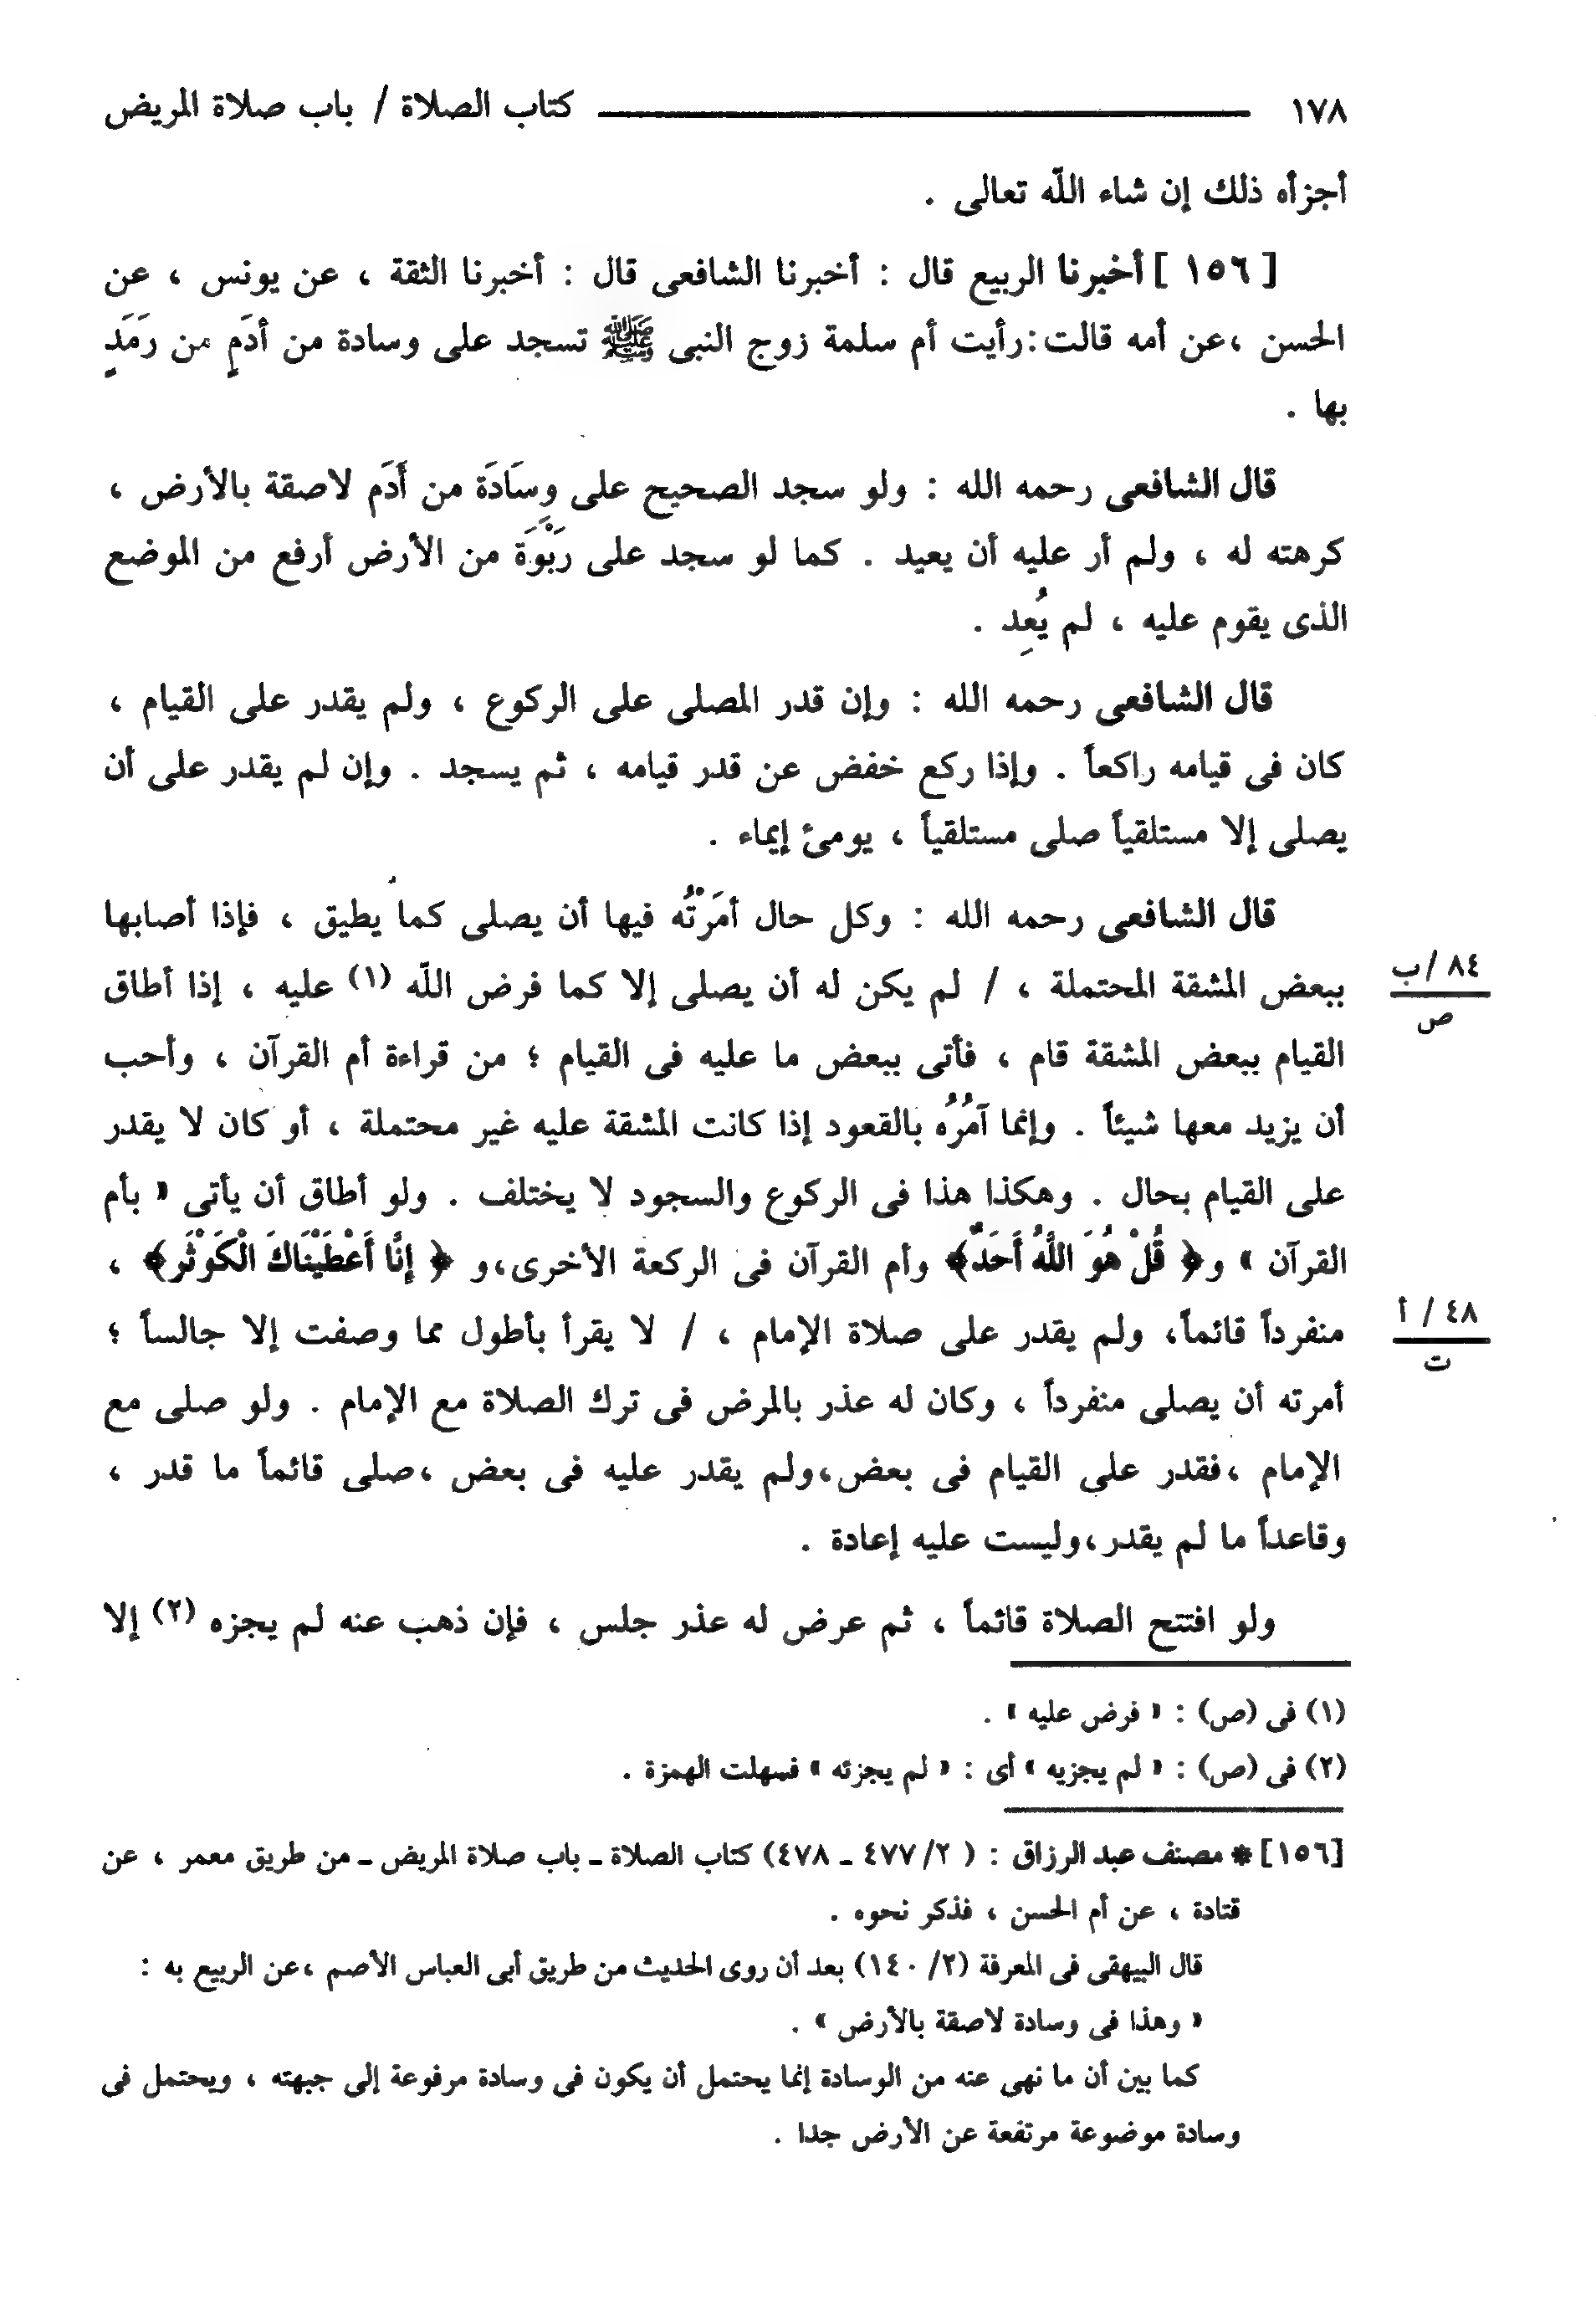 ١٧٨ كتاب الصلاة / باب صلاة المريض
أجزأه ذلك إن شاء اللّه تعالى .
[ ١٥٦ ] أخبرنا الربيع قال : أخبرنا الشافعى قال : أخبرنا الثقة ، عن يونس ، عن
الحسن ،عن أمه قالت:رأيت أم سلمة زوج النبى ﷺ تسجد على وسادة من أدَمٍ من رَمَدٍ
بها .
قال الشافعى رحمه الله : ولو سجد الصحيح على وِسَادَة من أَدَم لاصقة بالأرض ،
كرهته له ، ولم أر عليه أن يعيد . كما لو سجد على رَبْوَة من الأرض أرفع من الموضع
الذى يقوم عليه ، لم يُعِد .
قال الشافعى رحمه الله : وإن قدر المصلى على الركوع ، ولم يقدر على القيام ،
كان فى قيامه راكعاً . وإذا ركع خفض عن قدر قيامه ، ثم يسجد . وإن لم يقدر على أن
يصلى إلا مستلقياً صلى مستلقياً ، يومئ إيماء .
قال الشافعى رحمه الله : وكل حال أمَرْتُه فيها أن يصلى كما يطيق ، فإذا أصابها
ببعض المشقة المحتملة ، / لم يكن له أن يصلى إلا كما فرض اللّه (١) عليه ، إذا أطاق
٨٤ /ب
ص
القيام ببعض المشقة قام ، فأتى ببعض ما عليه فى القيام ؛ من قراءة أم القرآن ، وأحب
أن يزيد معها شيئاً . وإنما آمُرُه بالقعود إذا كانت المشقة عليه غير محتملة ، أو كان لا يقدر
على القيام بحال . وهكذا هذا فى الركوع والسجود لا يختلف . ولو أطاق أن يأتى « بأم
القرآن » و﴿ قُلْ هُوَ اللَّهُ أَحَدٌ ﴾ وأم القرآن فى الركعة الأخرى،و ﴿ إِنَّا أَعْطَيْنَاكَ الْكَوْثَر﴾ ،
منفرداً قائماً، ولم يقدر على صلاة الإمام ، / لا يقرأ بأطول مما وصفت إلا جالساً ؛
٤٨ / أ
ت
أمرته أن يصلى منفرداً ، وكان له عذر بالمرض فى ترك الصلاة مع الإمام . ولو صلى مع
الإمام ،فقدر على القيام فى بعض،ولم يقدر عليه فى بعض ،صلى قائماً ما قدر ،
وقاعداً ما لم يقدر،وليست عليه إعادة .
ولو افتتح الصلاة قائماً ، ثم عرض له عذر جلس ، فإن ذهب عنه لم يجزه (٢) إلا
(١) فى (ص) : « فرض عليه » .
(٢) فى (ص) : « لم يجزيه » أى : « لم يجزئه » فسهلت الهمزة .
[١٥٦] * مصنف عبد الرزاق : ( ٢/ ٤٧٧ ـ ٤٧٨) كتاب الصلاة ـ باب صلاة المريض ـ من طريق معمر ، عن
قتادة ، عن أم الحسن ، فذكر نحوه .
قال البيهقى فى المعرفة (٢/ ١٤٠) بعد أن روى الحديث من طريق أبى العباس الأصم ،عن الربيع به :
« وهذا فى وسادة لاصقة بالأرض » .
كما بين أن ما نهى عنه من الوسادة إنما يحتمل أن يكون فى وسادة مرفوعة إلى جبهته ، ويحتمل فى
وسادة موضوعة مرتفعة عن الأرض جدا .